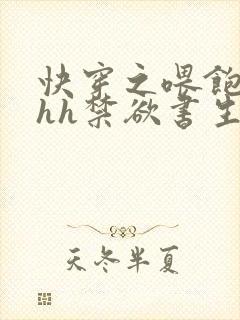 快穿之喂飽
hh禁欲書生
天冬半夏